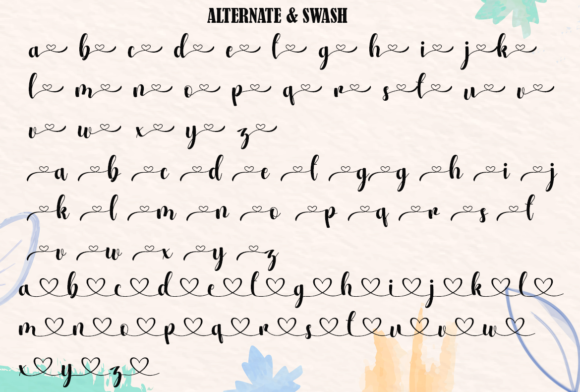 ALTERNATE & SWASH
a b c d e l g h i j k
l m n o p q r s t u v
v w x y z
a b c d e l g g h i j
k l m n o p q r s t
v w x y z
a b c d e l g h i j k l
m n o p q r s t u v w
x y z